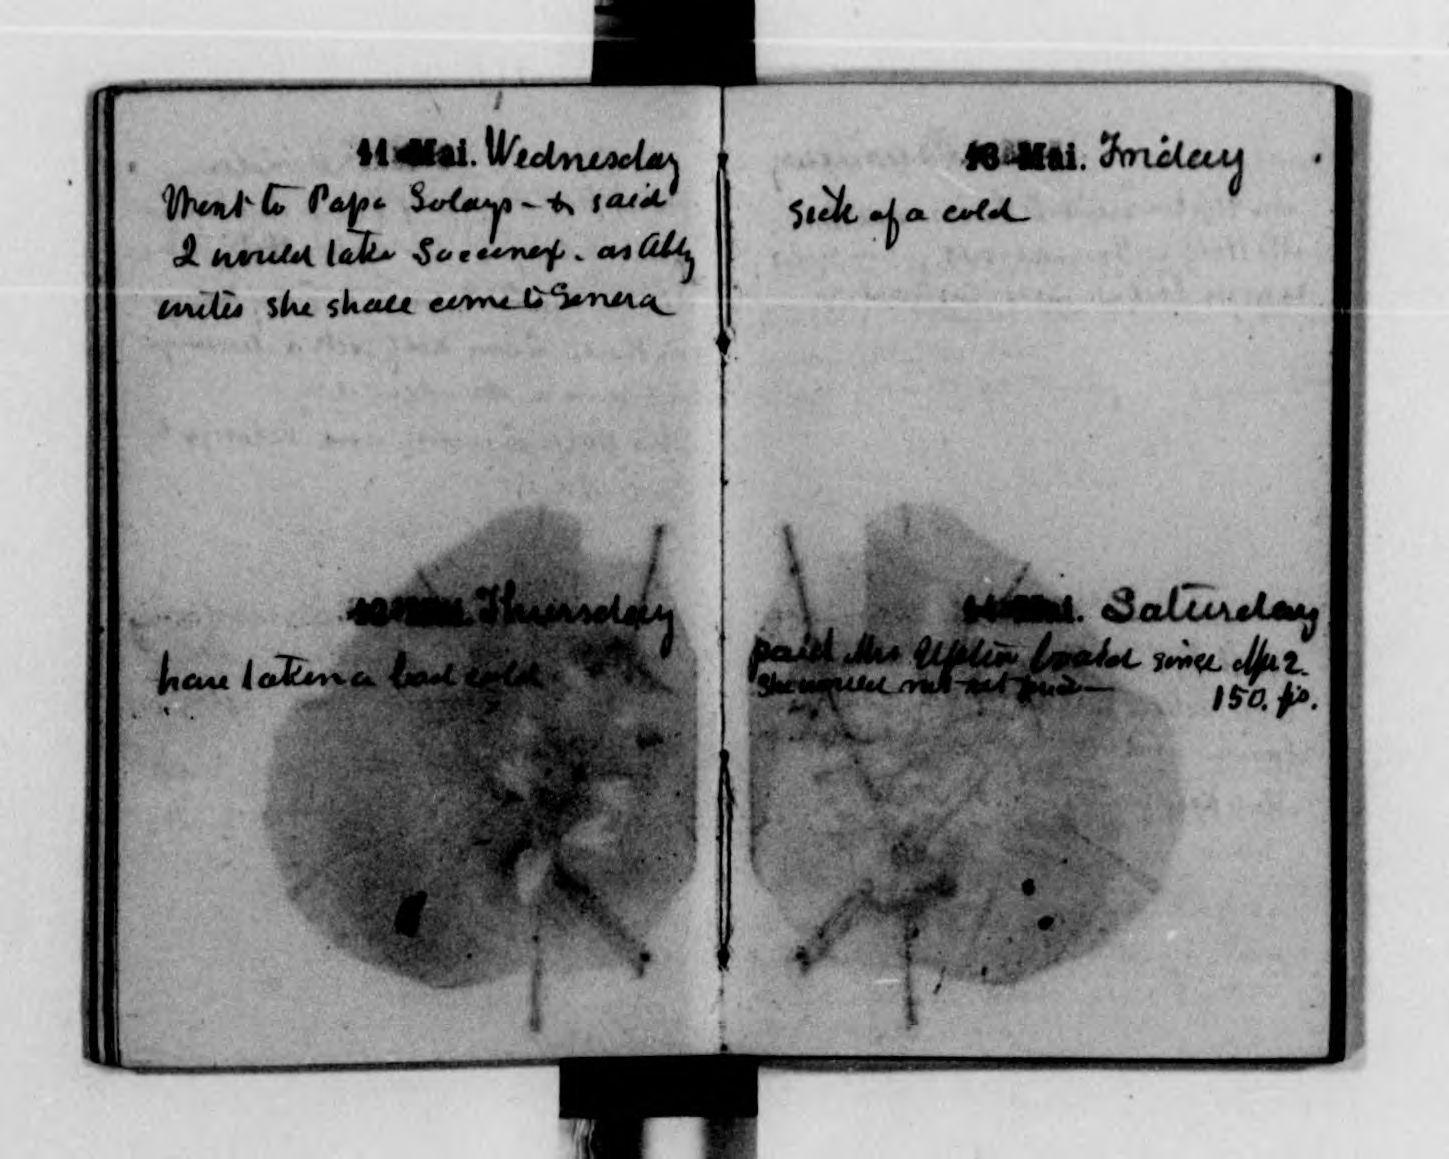 11 Mai. Wednesday
Went to Papa Golays - & said
I would take Succonnex. as Abby
writes she shall come to Geneva
12 Mai. Thursday
have taken a bad cold
13 Mai. Friday
sick of a cold
14 Mai. Saturday
paid Mrs Upton board since Apr 2.
She would not
150. frs.